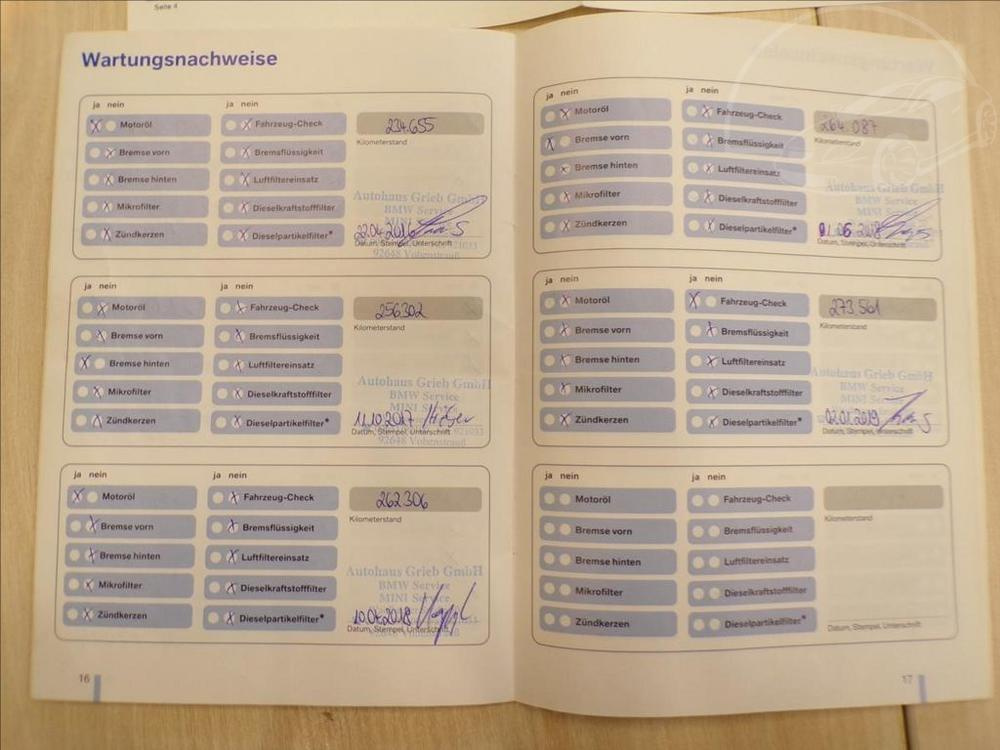 Seite 4
Wartungsnachweise
ja nein ja nein
Motoröl Fahrzeug-Check 234.655
Bremse vorn Bremsflüssigkeit Kilometerstand
Bremse hinten Luftfiltereinsatz
Mikrofilter Dieselkraftstofffilter
Zündkerzen Dieselpartikelfilter*
Autohaus Grieb GmbH
BMW Service
MINI
22.04.2016
Datum, Stempel, Unterschrift
92648 Vohenstrauß
ja nein ja nein
Motoröl Fahrzeug-Check 256302
Bremse vorn Bremsflüssigkeit Kilometerstand
Bremse hinten Luftfiltereinsatz
Mikrofilter Dieselkraftstofffilter
Zündkerzen Dieselpartikelfilter*
Autohaus Grieb GmbH
BMW Service
MINI
11.10.2017
Datum, Stempel, Unterschrift
92648 Vohenstrauß
ja nein ja nein
Motoröl Fahrzeug-Check 262306
Bremse vorn Bremsflüssigkeit Kilometerstand
Bremse hinten Luftfiltereinsatz
Mikrofilter Dieselkraftstofffilter
Zündkerzen Dieselpartikelfilter*
Autohaus Grieb GmbH
BMW Service
MINI
Datum, Stempel, Unterschrift
16
ja nein ja nein
Motoröl Fahrzeug-Check 264.087
Bremse vorn Bremsflüssigkeit Kilometerstand
Bremse hinten Luftfiltereinsatz
Mikrofilter Dieselkraftstofffilter
Zündkerzen Dieselpartikelfilter*
Autohaus Grieb GmbH
BMW Service
MINI
Datum, Stempel, Unterschrift
ja nein ja nein
Motoröl Fahrzeug-Check 273.561
Bremse vorn Bremsflüssigkeit Kilometerstand
Bremse hinten Luftfiltereinsatz
Mikrofilter Dieselkraftstofffilter
Zündkerzen Dieselpartikelfilter*
Autohaus Grieb GmbH
BMW Service
MINI
02.01.2019
Datum, Stempel, Unterschrift
ja nein ja nein
Motoröl Fahrzeug-Check
Bremse vorn Bremsflüssigkeit Kilometerstand
Bremse hinten Luftfiltereinsatz
Mikrofilter Dieselkraftstofffilter
Zündkerzen Dieselpartikelfilter*
Datum, Stempel, Unterschrift
17